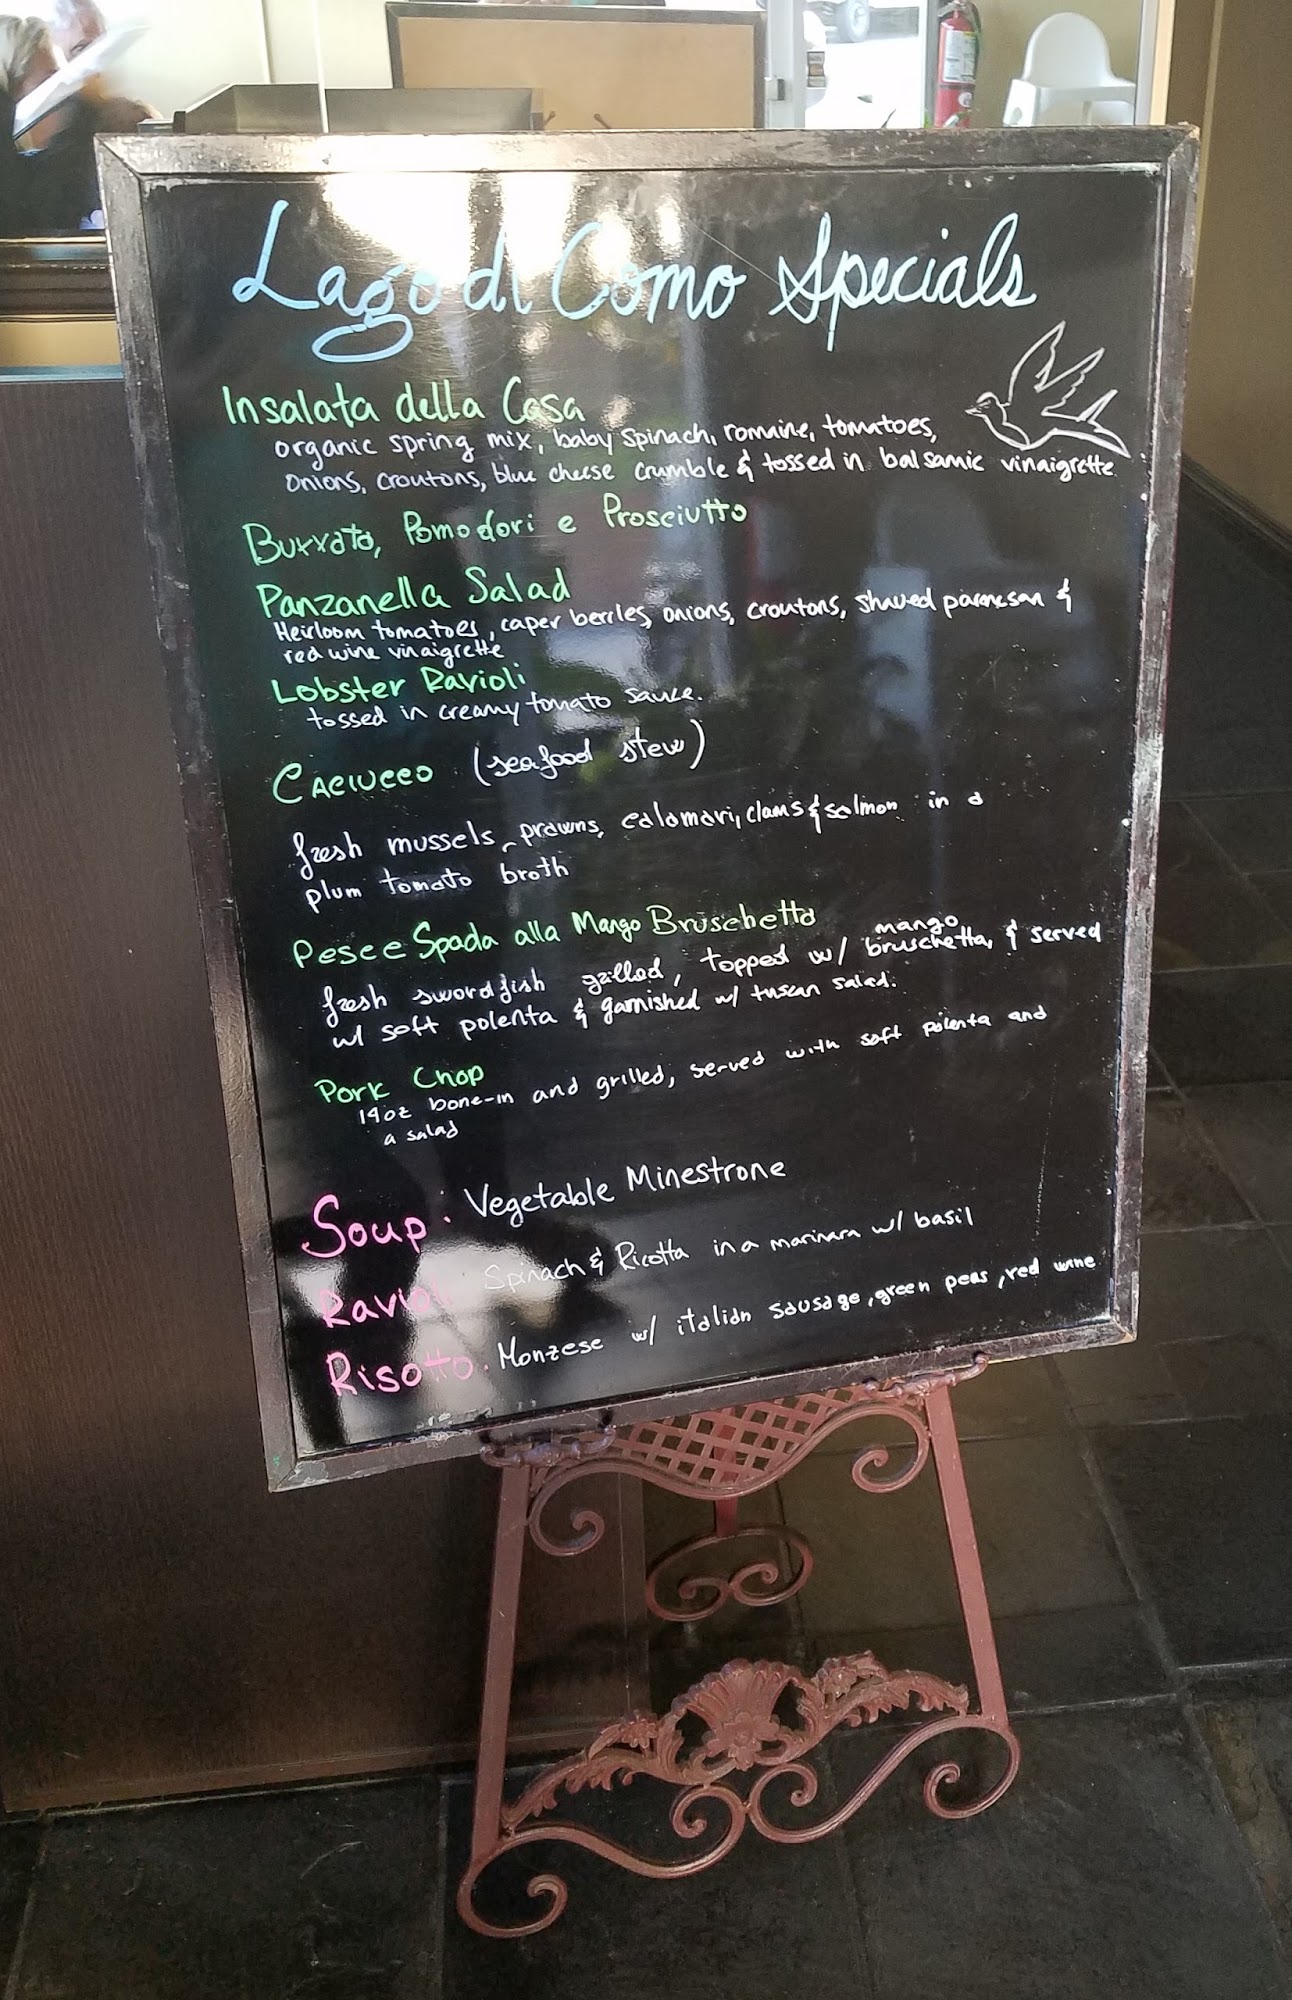 Lago di Como Specials
Insalata della Casa
organic spring mix, baby spinach, romaine, tomatoes,
onions, croutons, blue cheese crumble & tossed in balsamic vinaigrette
Burrata, Pomodori e Prosciutto
Panzanella Salad
Heirloom tomatoes, caper berries, onions, croutons, shaved parmesan &
red wine vinaigrette
Lobster Ravioli
tossed in creamy tomato sauce.
Caciucco (seafood stew)
fresh mussels, prawns, calamari, clams & salmon in a
plum tomato broth
Pesce Spada alla Mango Bruschetta
fresh swordfish grilled, topped w/ mango bruschetta, & served
w/ soft polenta & garnished w/ tuscan salad.
Pork Chop
14oz bone-in and grilled, served with soft polenta and
a salad
Soup: Vegetable Minestrone
Ravioli: Spinach & Ricotta in a marinara w/ basil
Risotto: Monzese w/ italian sausage, green peas, red wine